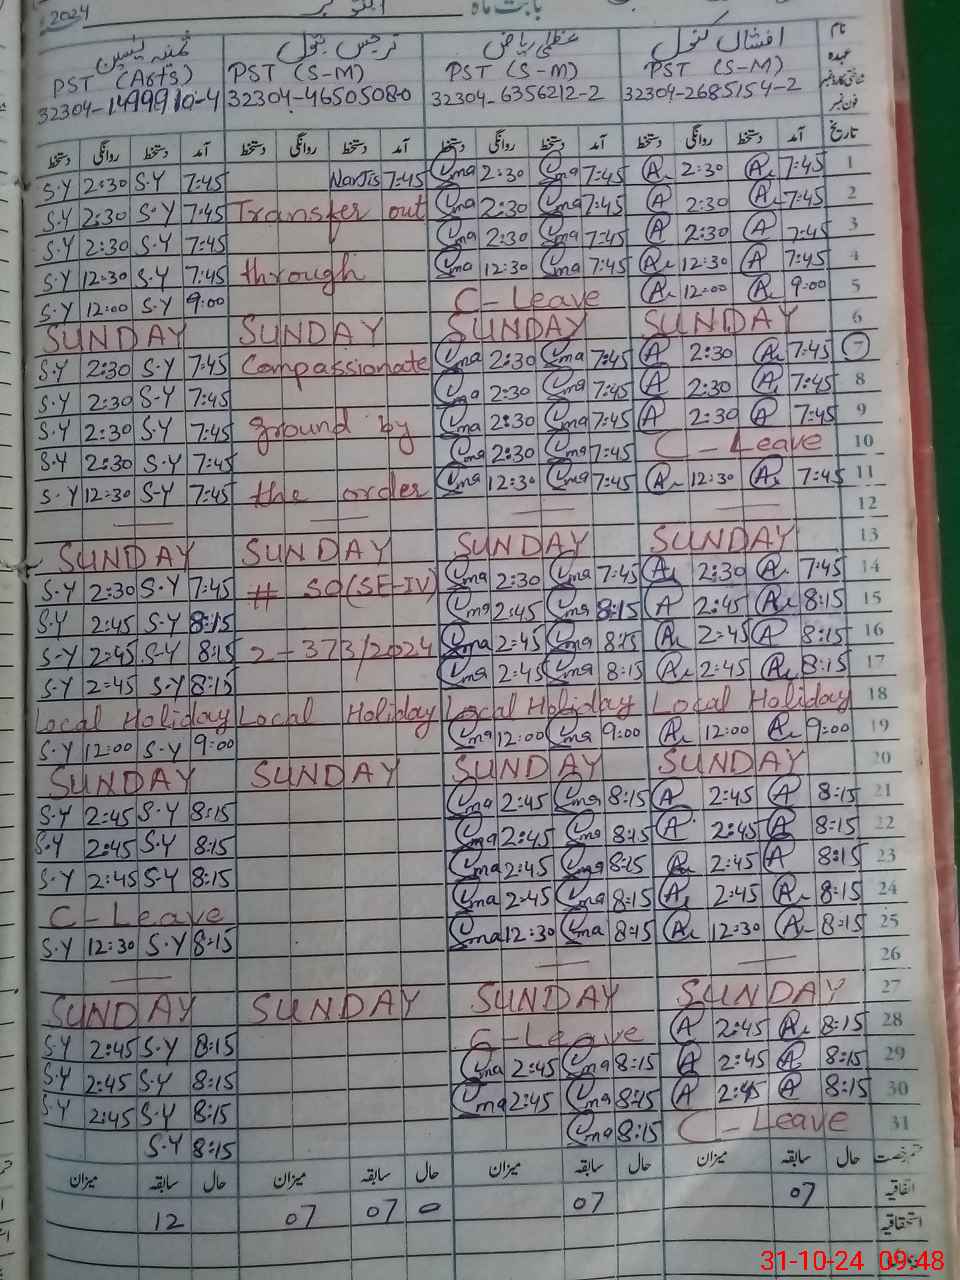 2024 بابت ماہ اکتوبر
نام افشاں کنول عظمیٰ ریاض نرجس بتول ثمینہ یٰسین
عہدہ PST (S-M) PST (S-M) PST (S-M) PST (Arts)
32304-2685154-2 32304-6356212-2 32304-4650508-0
فون نمبر
تاریخ آمد دستخط روانگی دستخط آمد دستخط روانگی دستخط آمد دستخط روانگی دستخط آمد دستخط روانگی دستخط
S.Y 2:30 S.Y 7:45 Narjis 7:45 Uma 2:30 Uma 7:45 A 2:30 A 7:45 1
S.Y 2:30 S.Y 7:45 Transfer out Uma 2:30 Uma 7:45 A 2:30 A 7:45 2
S.Y 2:30 S.Y 7:45 Uma 2:30 Uma 7:45 A 2:30 A 7:45 3
S.Y 12:30 S.Y 7:45 through Uma 12:30 Uma 7:45 A 12:30 A 7:45 4
S.Y 12:00 S.Y 9:00 C-Leave A 12:00 A 9:00 5
SUNDAY SUNDAY SUNDAY SUNDAY 6
S.Y 2:30 S.Y 7:45 Compassionate Uma 2:30 Uma 7:45 A 2:30 A 7:45 7
S.Y 2:30 S-Y 7:45 Uma 2:30 Uma 7:45 A 2:30 A 7:45 8
S.Y 2:30 S.Y 7:45 ground by Uma 2:30 Uma 7:45 A 2:30 A 7:45 9
S.Y 2:30 S.Y 7:45 Uma 2:30 Uma 7:45 C-Leave 10
S.Y 12:30 S-Y 7:45 the order Uma 12:30 Uma 7:45 A 12:30 A 7:45 11
— — — — 12
SUNDAY SUNDAY SUNDAY SUNDAY 13
S.Y 2:30 S.Y 7:45 # SO(SE-IV) Uma 2:30 Uma 7:45 A 2:30 A 7:45 14
S.Y 2:45 S.Y 8:15 Uma 2:45 Uma 8:15 A 2:45 A 8:15 15
S-Y 2:45 S-Y 8:15 2-373/2024 Uma 2:45 Uma 8:15 A 2:45 A 8:15 16
S.Y 2:45 S.Y 8:15 Uma 2:45 Uma 8:15 A 2:45 A 8:15 17
Local Holiday Local Holiday Local Holiday Local Holiday 18
S.Y 12:00 S.Y 9:00 Uma 12:00 Uma 9:00 A 12:00 A 9:00 19
SUNDAY SUNDAY SUNDAY SUNDAY 20
S.Y 2:45 S.Y 8:15 Uma 2:45 Uma 8:15 A 2:45 A 8:15 21
S.Y 2:45 S.Y 8:15 Uma 2:45 Uma 8:15 A 2:45 A 8:15 22
S.Y 2:45 S.Y 8:15 Uma 2:45 Uma 8:15 A 2:45 A 8:15 23
C-Leave Uma 2:45 Uma 8:15 A 2:45 A 8:15 24
S.Y 12:30 S.Y 8:15 Uma 12:30 Uma 8:15 A 12:30 A 8:15 25
— — — 26
SUNDAY SUNDAY SUNDAY SUNDAY 27
S.Y 2:45 S.Y 8:15 C-Leave A 2:45 A 8:15 28
S.Y 2:45 S.Y 8:15 Uma 2:45 Uma 8:15 A 2:45 A 8:15 29
S.Y 2:45 S.Y 8:15 Uma 2:45 Uma 8:15 A 2:45 A 8:15 30
S.Y 8:15 Uma 8:15 C-Leave 31
قسم رخصت حال سابقہ میزان حال سابقہ میزان حال سابقہ میزان حال سابقہ میزان
اتفاقیہ 07 07 0 07 07 12
استحقاقیہ
31-10-24 09:48